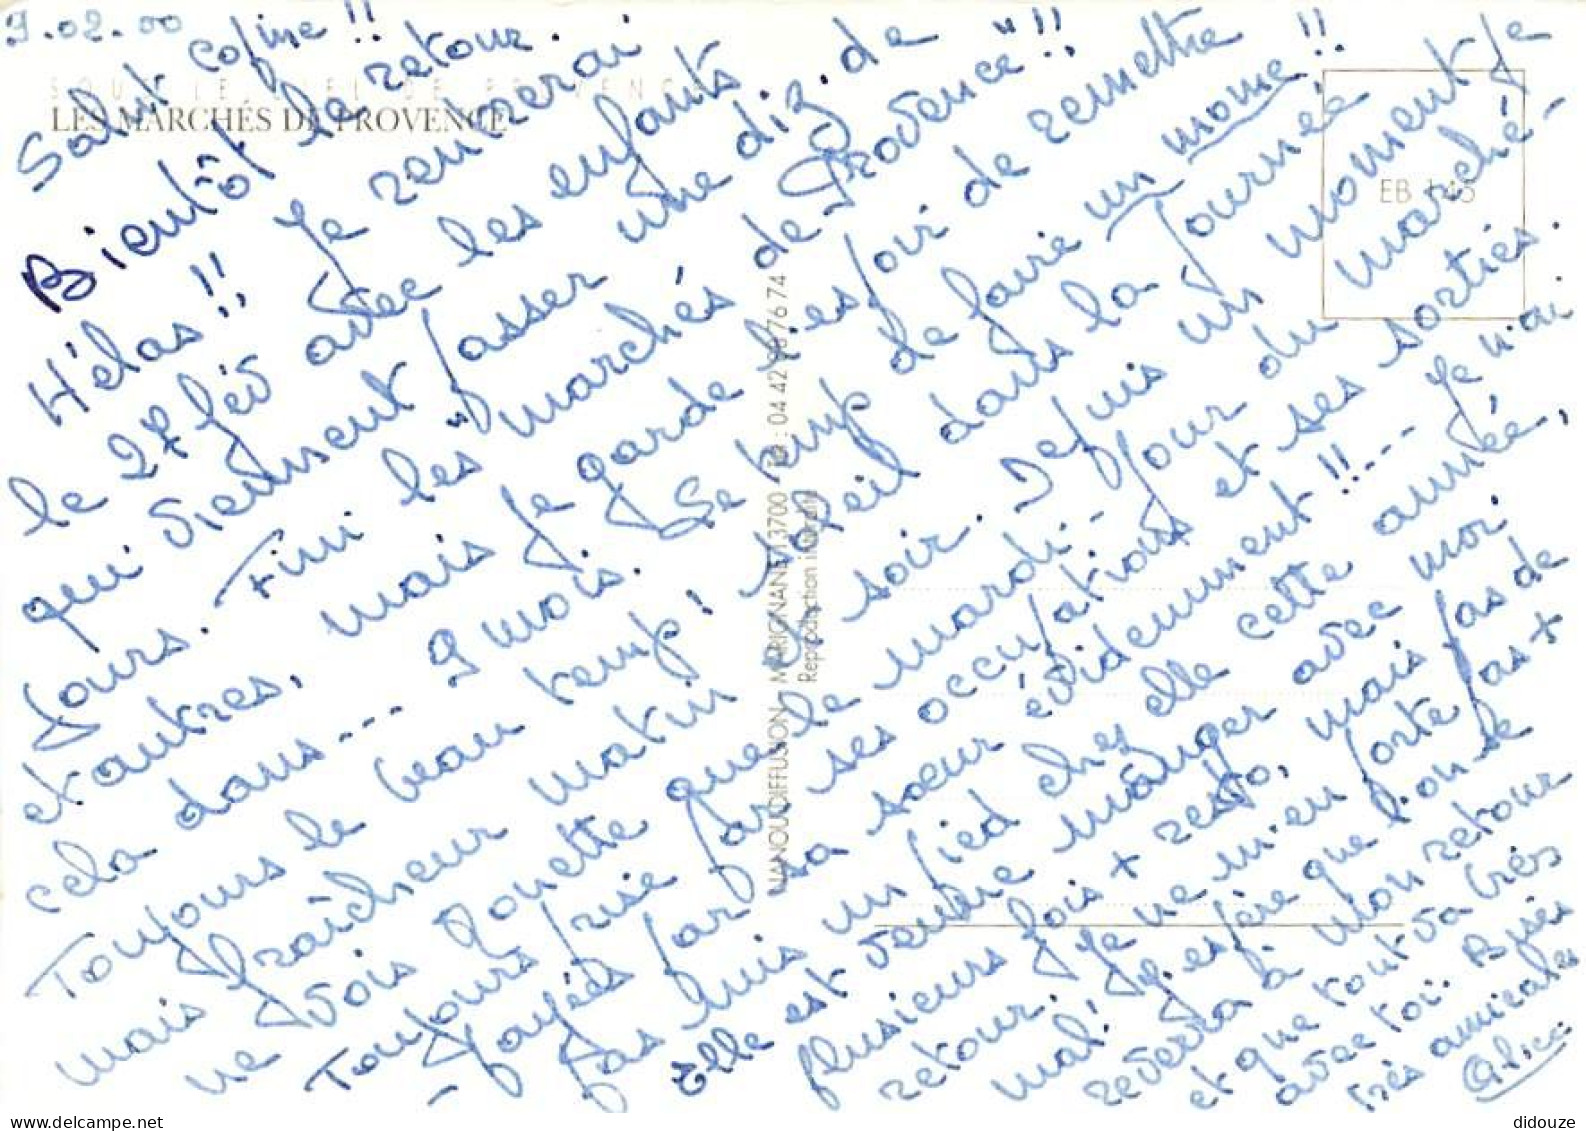 9.02.00
SOUS LE CIEL DE PROVENCE
LES MARCHÉS DE PROVENCE
EB 145
NANOUDIFFUSION MARIGNANE 13700
Reproduction interdite
Salut copine !!
Bientôt le retour.
Hélas !! Je rentrerai
le 27 fév avec les enfants
qui viennent passer une diz. de
jours. Fini les "marchés de Provence" !!
et autres, mais je garde l'espoir de remettre
cela dans --- 9 mois. Se temps de faire un mome !!
Toujours le beau temps ! soleil dans la journée
mais fraîcheur matin & soir. Depuis un moment je
ne vois Ginette que le mardi - jour du marché -
Toujours prise par ses occupations et ses sorties.
- payées par sa soeur évidemment !! --- Je n'ai
pas mis un pied chez elle cette année,
Elle est venue manger avec moi
plusieurs fois + resto, mais pas de
retour. Je ne m'en porte pas +
mal ! J'espère que l'on se
reverra à mon retour
et que tout va très
avec toi. Bises
très amicales
Alice
didouze